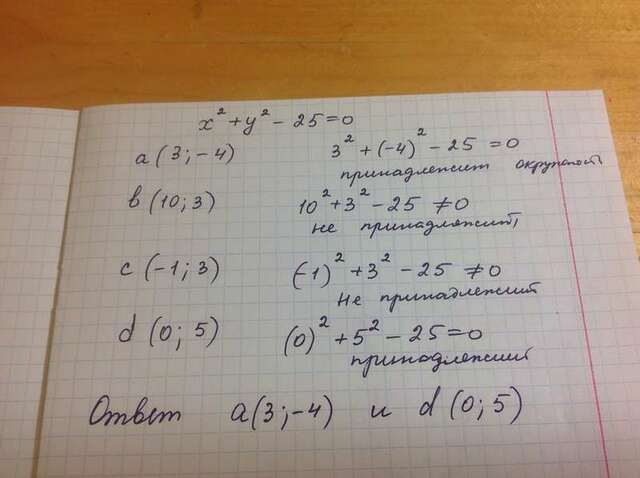 x² + y² - 25 = 0
a (3; -4) 3² + (-4)² - 25 = 0
принадлежит окружности
b (10; 3) 10² + 3² - 25 ≠ 0
не принадлежит
c (-1; 3) (-1)² + 3² - 25 ≠ 0
Не принадлежит
d (0; 5) (0)² + 5² - 25 = 0
принадлежит
Ответ a(3; -4) и d (0; 5)